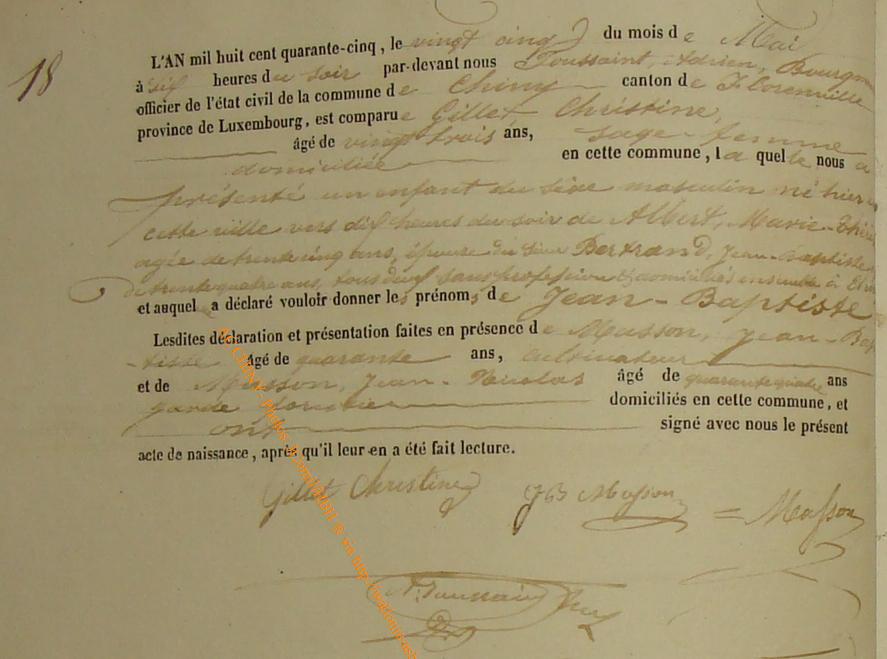 18
L'AN mil huit cent quarante-cinq, le vingt cinq du mois de Mai
à dix heures du soir par-devant nous Toussaint, Adrien, Bourgm
officier de l'état civil de la commune de Chiny canton de Florenville
province de Luxembourg, est comparue Gillet Christine,
âgé de vingt trois ans, sage-femme
domiciliée en cette commune, la quelle nous a
présenté un enfant du sèxe masculin né hier
cette ville vers dix heures du soir de Albert, Marie-Thér
agée de trente cinq ans, épouse du Sieur Bertrand, Jean-Baptiste
de trente quatre ans, tous deux sans profession & domiciliés ensemble à
et auquel a déclaré vouloir donner les prénoms de Jean-Baptiste
Lesdites déclaration et présentation faites en présence de Masson, Jean-Bap
tiste âgé de quarante ans, cultivateur
et de Masson, Jean-Nicolas âgé de quarante quatre ans
garde forestier domiciliés en cette commune, et
ont signé avec nous le présent
acte de naissance, après qu'il leur en a été fait lecture.
Gillet Christine JB Masson Masson
A. Toussaint